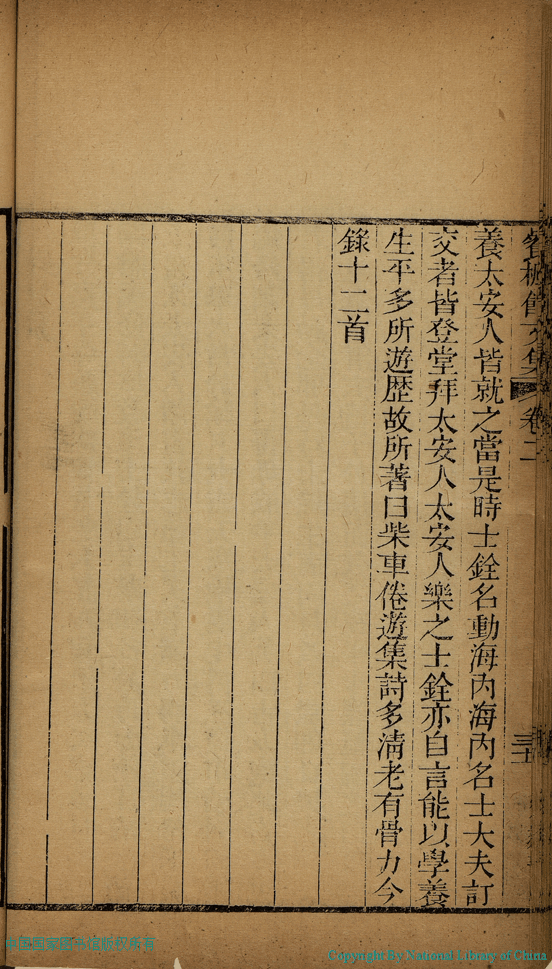 養太安人皆就之當是時士銓名動海内海内名士大夫訂
交者皆登堂拜太安人太安人樂之士銓亦自言能以學養
生平多所遊歷故所著曰柴車倦遊集詩多淸老有骨力今
錄十二首
文集 卷二
Copyright By National Library of China